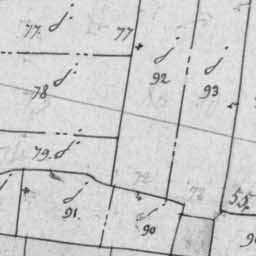 77.
77
92
93
78
79.
55.
91.
90